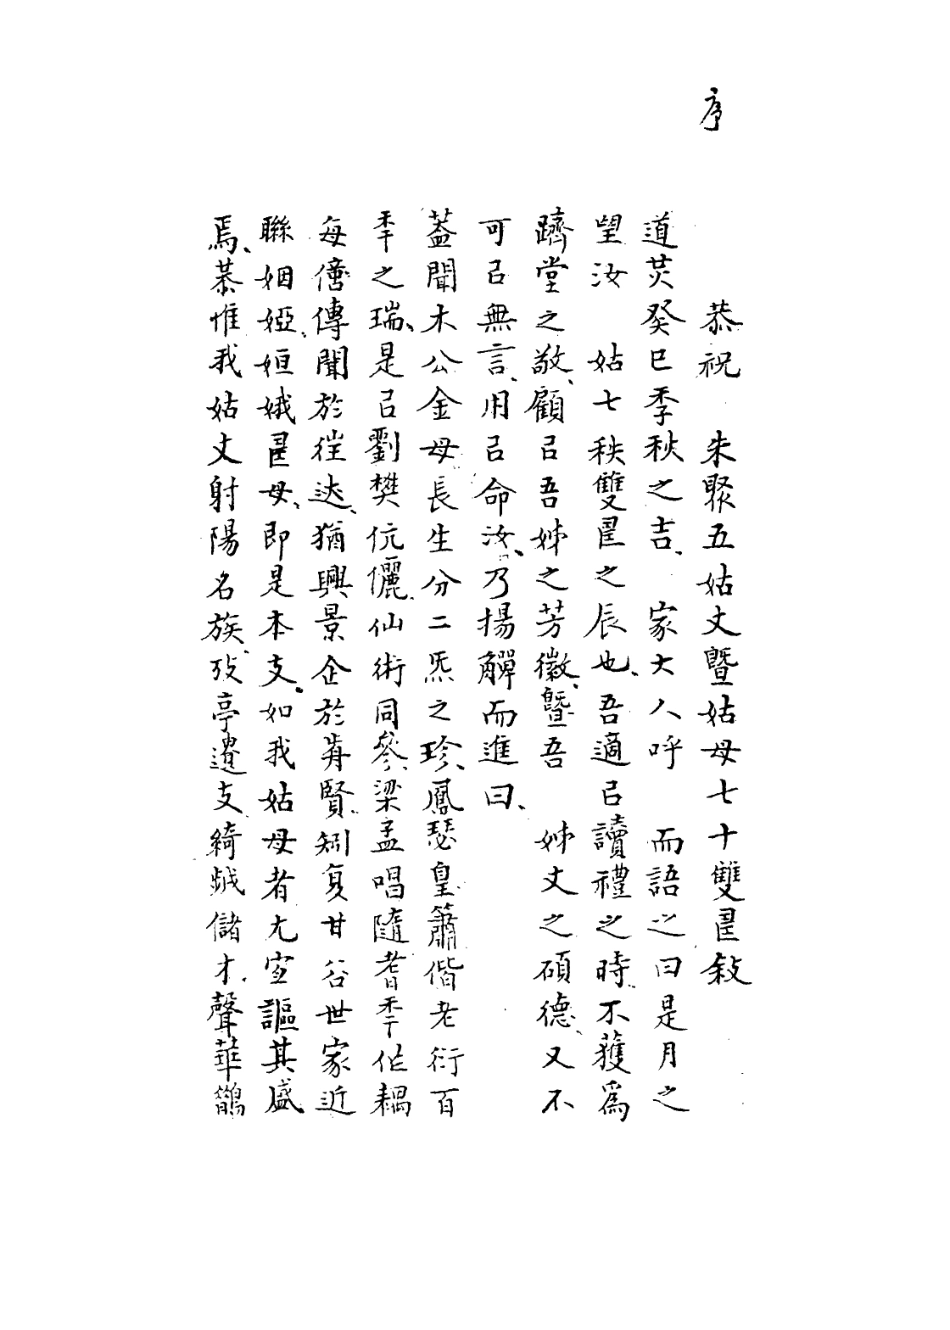 序
恭祝　朱聚五姑丈暨姑母七十雙𦣞敍
道光癸巳季秋之吉、家大人呼　而語之曰是月之
望汝　姑七秩雙𦣞之辰也、吾適㠯讀禮之時、不獲爲
躋堂之敬、顧㠯吾姊之芳徽、暨吾　姊丈之碩德、又不
可㠯無言、用㠯命汝、乃揚觶而進曰、
蓋聞木公金母、長生分二炁之珍、鳳瑟皇簫、偕老衍百
秊之瑞、是㠯劉樊伉儷、仙術同參、梁孟唱隨、耆秊作耦
每僮傳聞於往迭、猶興景企於歬賢、矧复甘谷世家、近
聯姻婭、姮娥𦣞母、即是本支、如我姑母者、尤宜謳其盛
焉、恭惟我姑丈射陽名族、攷亭遷支、綺歲儲才、聲華鶺